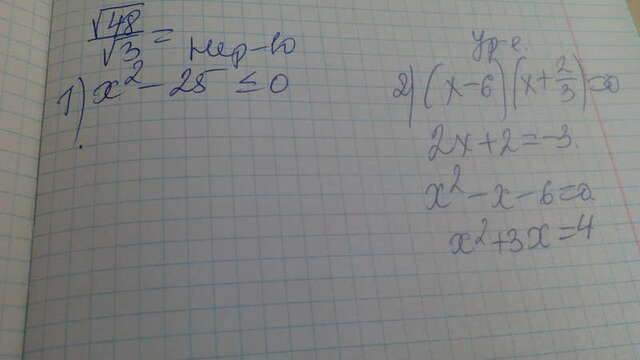 √48/√3 = нер-во
1) x² - 25 ≤ 0
Ур-е.
2) (x-6)(x+2/3)=0
2x+2=-3.
x²-x-6=0
x²+3x=4